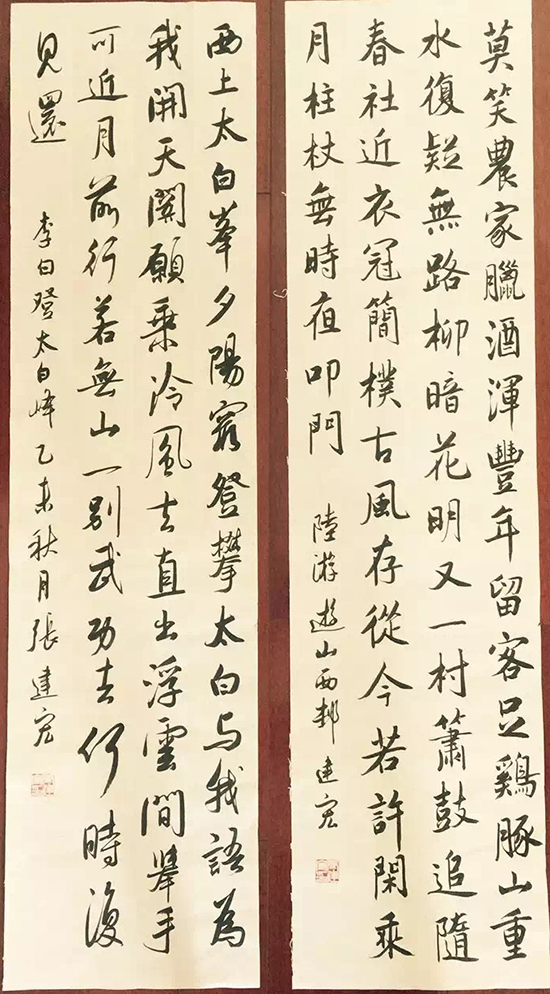 莫笑農家臘酒渾豐年留客足鷄豚山重
水復疑無路柳暗花明又一村簫鼓追隨
春社近衣冠簡樸古風存從今若許閑乘
月柱杖無時夜叩門 陸游遊山西邨 建宏
西上太白峯夕陽窮登攀太白与我語為
我開天關願乘泠風去直出浮雲間舉手
可近月前行若無山一别武功去何時復
見還 李白登太白峰乙未秋月張建宏